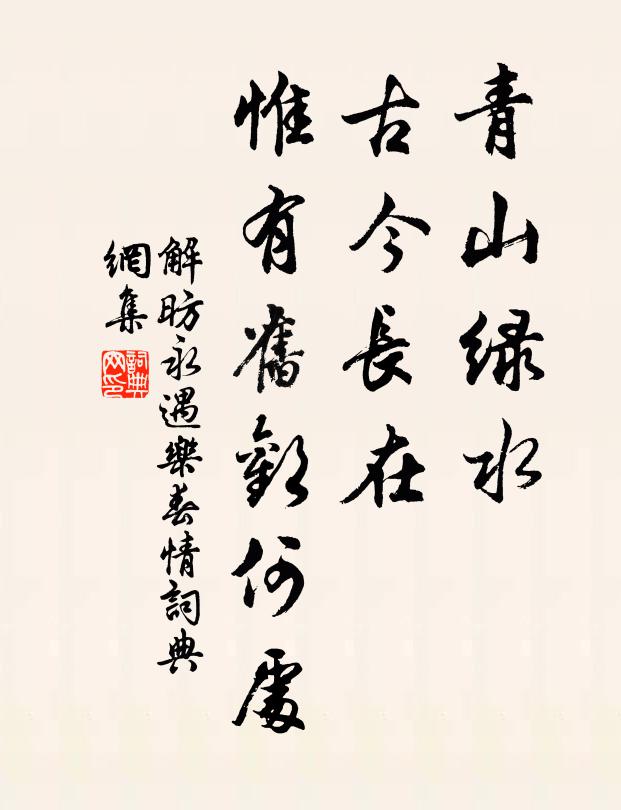 青山绿水
古今長在
惟有舊歡何處
解昉永遇樂春情詞典
網集
詞典
网印